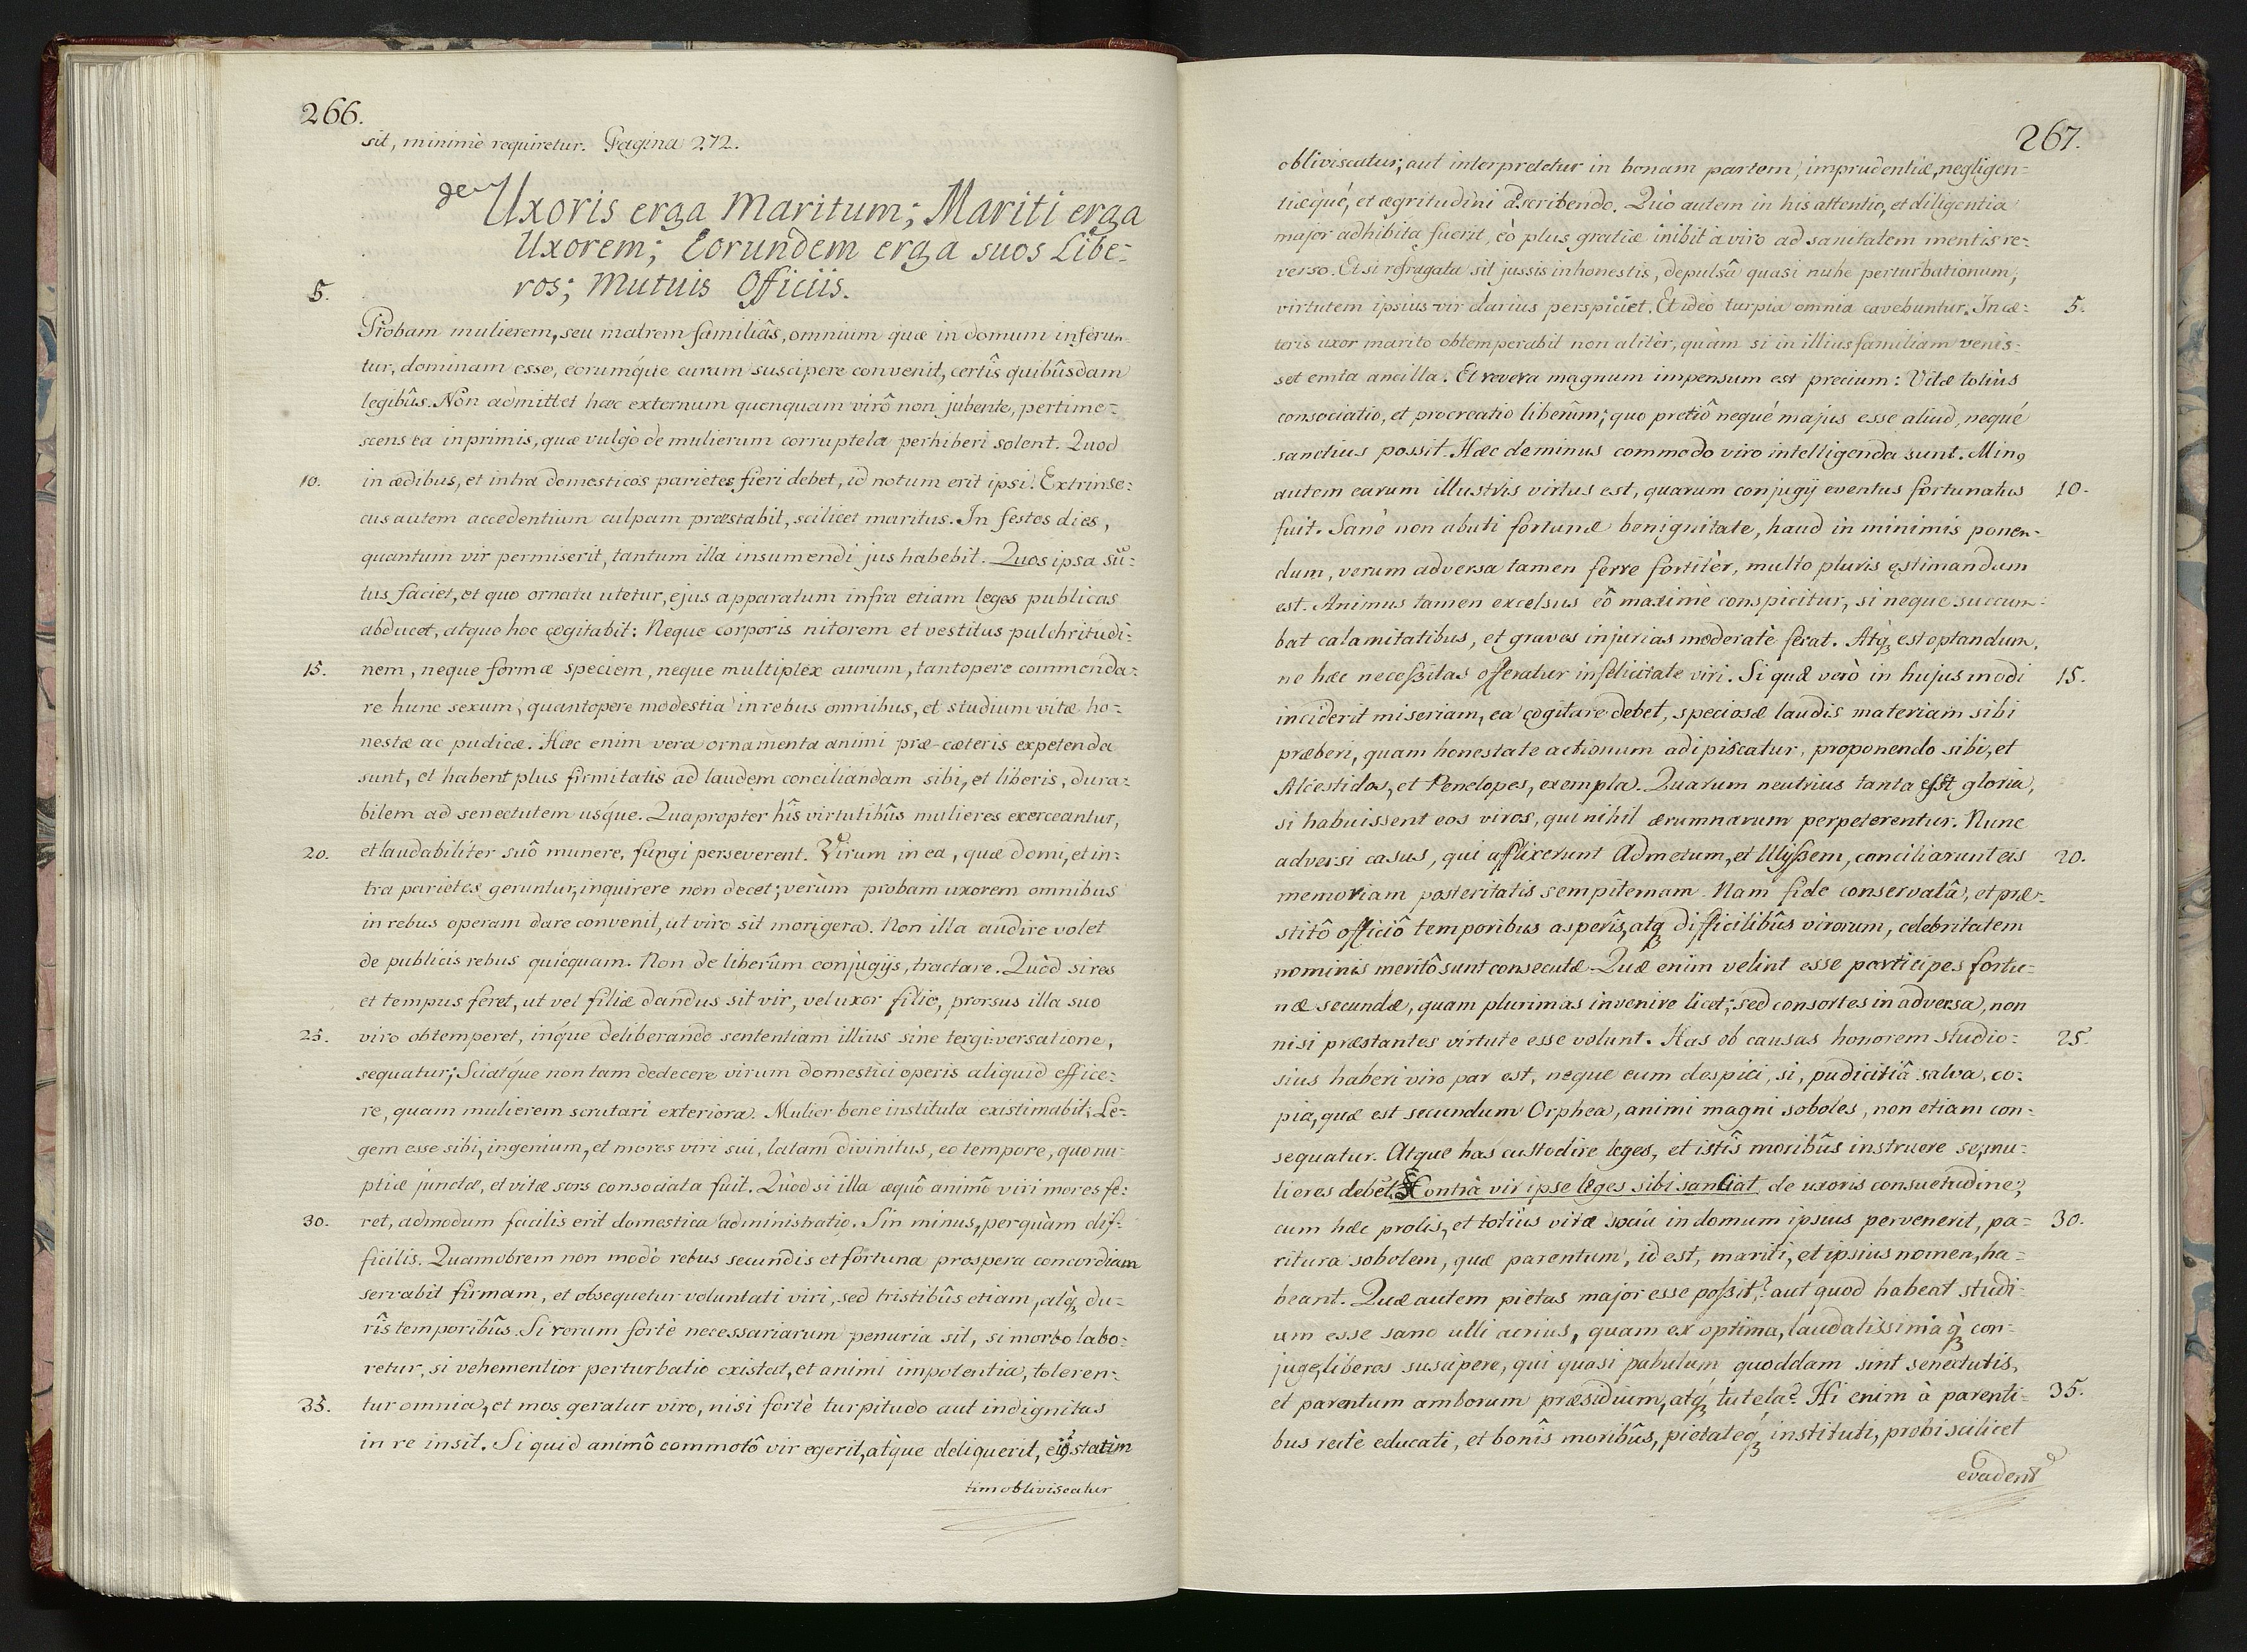 266.
sit, minimè requiretur. Pagina 272.
de Uxoris erga Maritum; Mariti erga
Uxorem; Eorundem erga suos Libe-
5. ros; Mutuis Officiis.
Probam mulierem, seu matrem familiâs, omnium quæ in domum inferun-
tur, dominam esse, eorumq́ue curam suscipere convenit, certîs quibûsdam
legibûs. Non admittet hæc externum quenquam virô non jubente, pertime-
scens ea inprimis, quæ vulgò de mulierum corruptela perhiberi solent. Quod
10. in ædibus, et intra domesticos parietes fieri debet, id notum erit ipsi. Extrinse-
cus autem accedentium culpam præstabit, scilicet maritus. In festos dies,
quantum vir permiserit, tantum illa insumendi jus habebit. Quos ipsa su-
tus faciet, et quo ornatu utetur, ejus apparatum infra etiam leges publicas
abducet, atque hoc cogitabit: Neque corporis nitorem et vestitus pulchritudi-
15. nem, neque formæ speciem, neque multiplex aurum, tantopere commenda-
re hunc sexum, quantopere modestia in rebus omnibus, et studium vitæ ho-
nestæ ac pudicæ. Hæc enim vera ornamenta animi præ-cæteris expetenda
sunt, et habent plus firmitatis ad laudem conciliandam sibi, et liberis, dura-
bilem ad senectutem usq́ue. Quapropter hîs virtutibûs mulieres exerceantur,
20. et laudabiliter suô munere, fungi perseverent. Virum in ea, quæ domi, et in-
tra parietes geruntur, inquirere non decet; verùm probam uxorem omnibus
in rebus operam dare convenit, ut viro sit morigera. Non illa audire volet
de publicis rebus quicquam. Non de liberûm conjugijs, tractare. Quòd si res
et tempus feret, ut vel filiæ dandus sit vir, vel uxor filio, prorsus illa suo
25. viro obtemperet, inq́ue deliberando sententiam illius sine tergi-versatione,
sequatur; Sciatq́ue non tam dedecere virum domestici operis aliquid effice-
re, quam mulierem scrutari exteriora. Mulier bene instituta existimabit; Le-
gem esse sibi, ingenium, et mores viri sui, latam divinitus, eo tempore, quo nu-
ptiæ junctæ, et vitæ sors consociata fuit. Quòd si illa æquô animô viri mores fe-
30. ret, admodum facilis erit domestica administratio. Sin minus, perquàm dif-
ficilis. Quamobrem non modò rebus secundis et fortuna prospera concordiam
servabit firmam, et obsequetur voluntati viri, sed tristibûs etiam, atq́; du-
rîs temporibûs. Si rerum fortè necessariarum penuria sit, si morbo labo-
retur, si vehementior perturbatio existat, et animi impotentia, toleren-
35. tur omnia, et mos geratur viro, nisi fortè turpitudo aut indignitas
in re insit. Si quid animô commotô vir egerit, atque deliquerit, statim
tim obliviscatur
267.
obliviscatur; aut interpretetur in bonam partem, imprudentiæ, negligen-
tiæqué, et ægritudini ascribendo. Quò autem in his attentio, et diligentia
major adhibita fuerit, eò plus gratiæ inibit a viro ad sanitatem mentis re-
verso. Et si refragata sit jussis inhonestis, depulsâ quasi nube perturbationum,
virtutem ipsius vir clarius perspiciet. Et ideò turpia omnia cavebuntur. In cæ- 5.
teris uxor marito obtemperabit non alitèr, quàm si in illius familiam venis-
set emta ancilla. Et revera magnum impensum est precium: Vitæ totius
consociatio, et procreatio liberûm; quo pretiô nequé majus esse aliud, nequé
sanctius possit. Hæc de minus commodo viro intelligenda sunt. Min9
autem earum illustris virtus est, quarum conjugij eventus fortunatus 10.
fuit. Sanè non abuti fortunæ benignitate, haud in minimis ponen-
dum, verum adversa tamen ferre fortitèr, multo pluris æstimandum
est. Animus tamen excelsus eô maximè conspicitur, si neque succum-
bat calamitatibus, et graves injurias moderatè ferat. Atq́; est optandum,
ne hæc necessitas offeratur infelicitate viri. Si quæ verò in hujus modi 15.
inciderit miseriam, ea cogitare debet, speciosæ laudis materiam sibi
præberi, quam honestate actionum adipiscatur, proponendo sibi, et
Alcestidos, et Penelopes, exempla. Quarum neutrius tanta esset gloria,
si habuissent eos viros, qui nihil ærumnarum perpeterentur. Nunc
adversi casus, qui afflixerunt Admetum, et Ulyssem, conciliarunt eis 20.
memoriam posteritatis sempiternam. Nam fide conservatâ, et præ-
stitô officiô temporibus asperîs, atq; difficilibûs virorum, celebritatem
nominis meritô sunt consecutæ. Quæ enim velint esse participes fortu-
næ secundæ, quam plurimas invenire licet; sed consortes in adversa, non
nisi præstantes virtute esse volunt. Has ob causas honorem studio- 25.
sius haberi viro par est, neque eum despici, si, pudicitiâ salva, co-
pia, quæ est secundum Orphea, animi magni soboles, non etiam con-
sequatur. Atque has custodire leges, et istîs moribûs instruere se, mu-
lieres debet. Contrà vir ipse leges sibi sanciat de uxoris consuetudine;
cum hæc prolis, et totius vitæ socia in domum ipsius pervenerit, pa- 30.
ritura sobolem, quæ parentum, id est, mariti, et ipsius nomen, ha-
beant. Quæ autem pietas major esse possit? aut quod habeat studi-
um esse sano ulli acrius, quam ex optima, laudatissimaq́; con-
juge, liberos suscipere, qui quasi pabulum quoddam sint senectutis,
et parentum amborum præsidium, atq́; tutela? Hi enim à parenti- 35.
bus rectè educati, et bonîs moribûs, pietateq́; instituti, probi scilicet
evadent